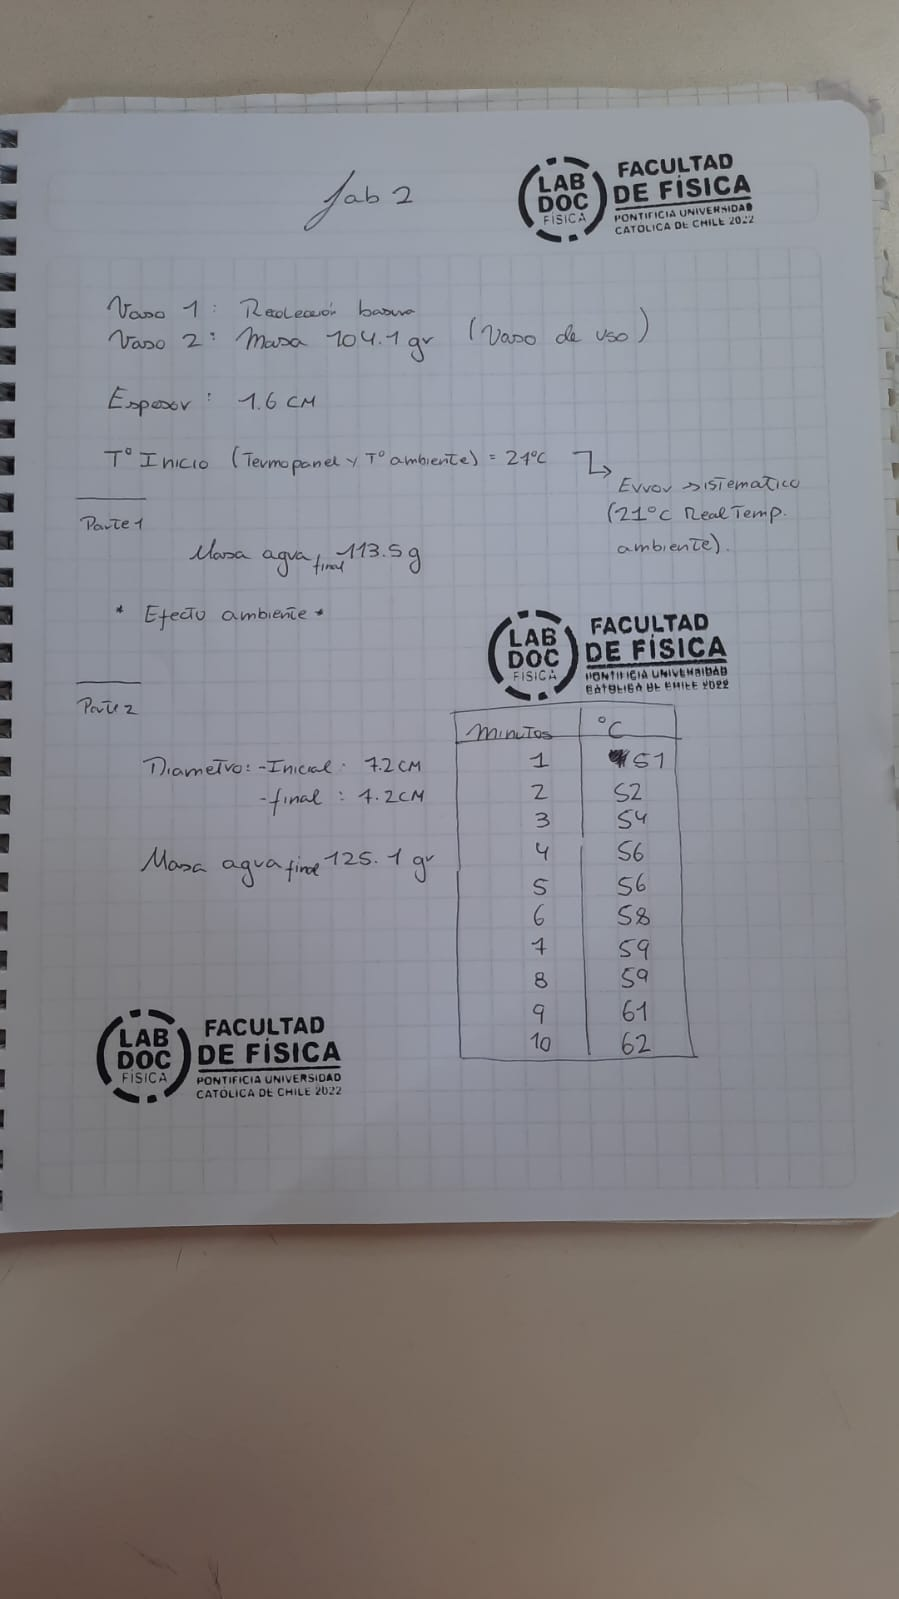 Lab 2
LAB
DOC
FÍSICA
FACULTAD
DE FÍSICA
PONTIFICIA UNIVERSIDAD
CATÓLICA DE CHILE 2022
Vaso 1: Recolección basura
Vaso 2: Masa 104.1 gr (Vaso de uso)
Espesor: 1.6 CM
T° Inicio (Termopanel y T° ambiente) = 27°C
Error sistematico
(21°C Real Temp.
ambiente).
Parte 1
Masa agua final 113.5g
* Efecto ambiente *
LAB
DOC
FÍSICA
FACULTAD
DE FÍSICA
PONTIFICIA UNIVERSIDAD
CATÓLICA DE CHILE 2022
Parte 2
Diametro: -Inicial: 7.2CM
-final: 7.2CM
Masa agua final 125.1 gr
Minutos °C
1 51
2 52
3 54
4 56
5 56
6 58
7 59
8 59
9 61
10 62
LAB
DOC
FÍSICA
FACULTAD
DE FÍSICA
PONTIFICIA UNIVERSIDAD
CATÓLICA DE CHILE 2022